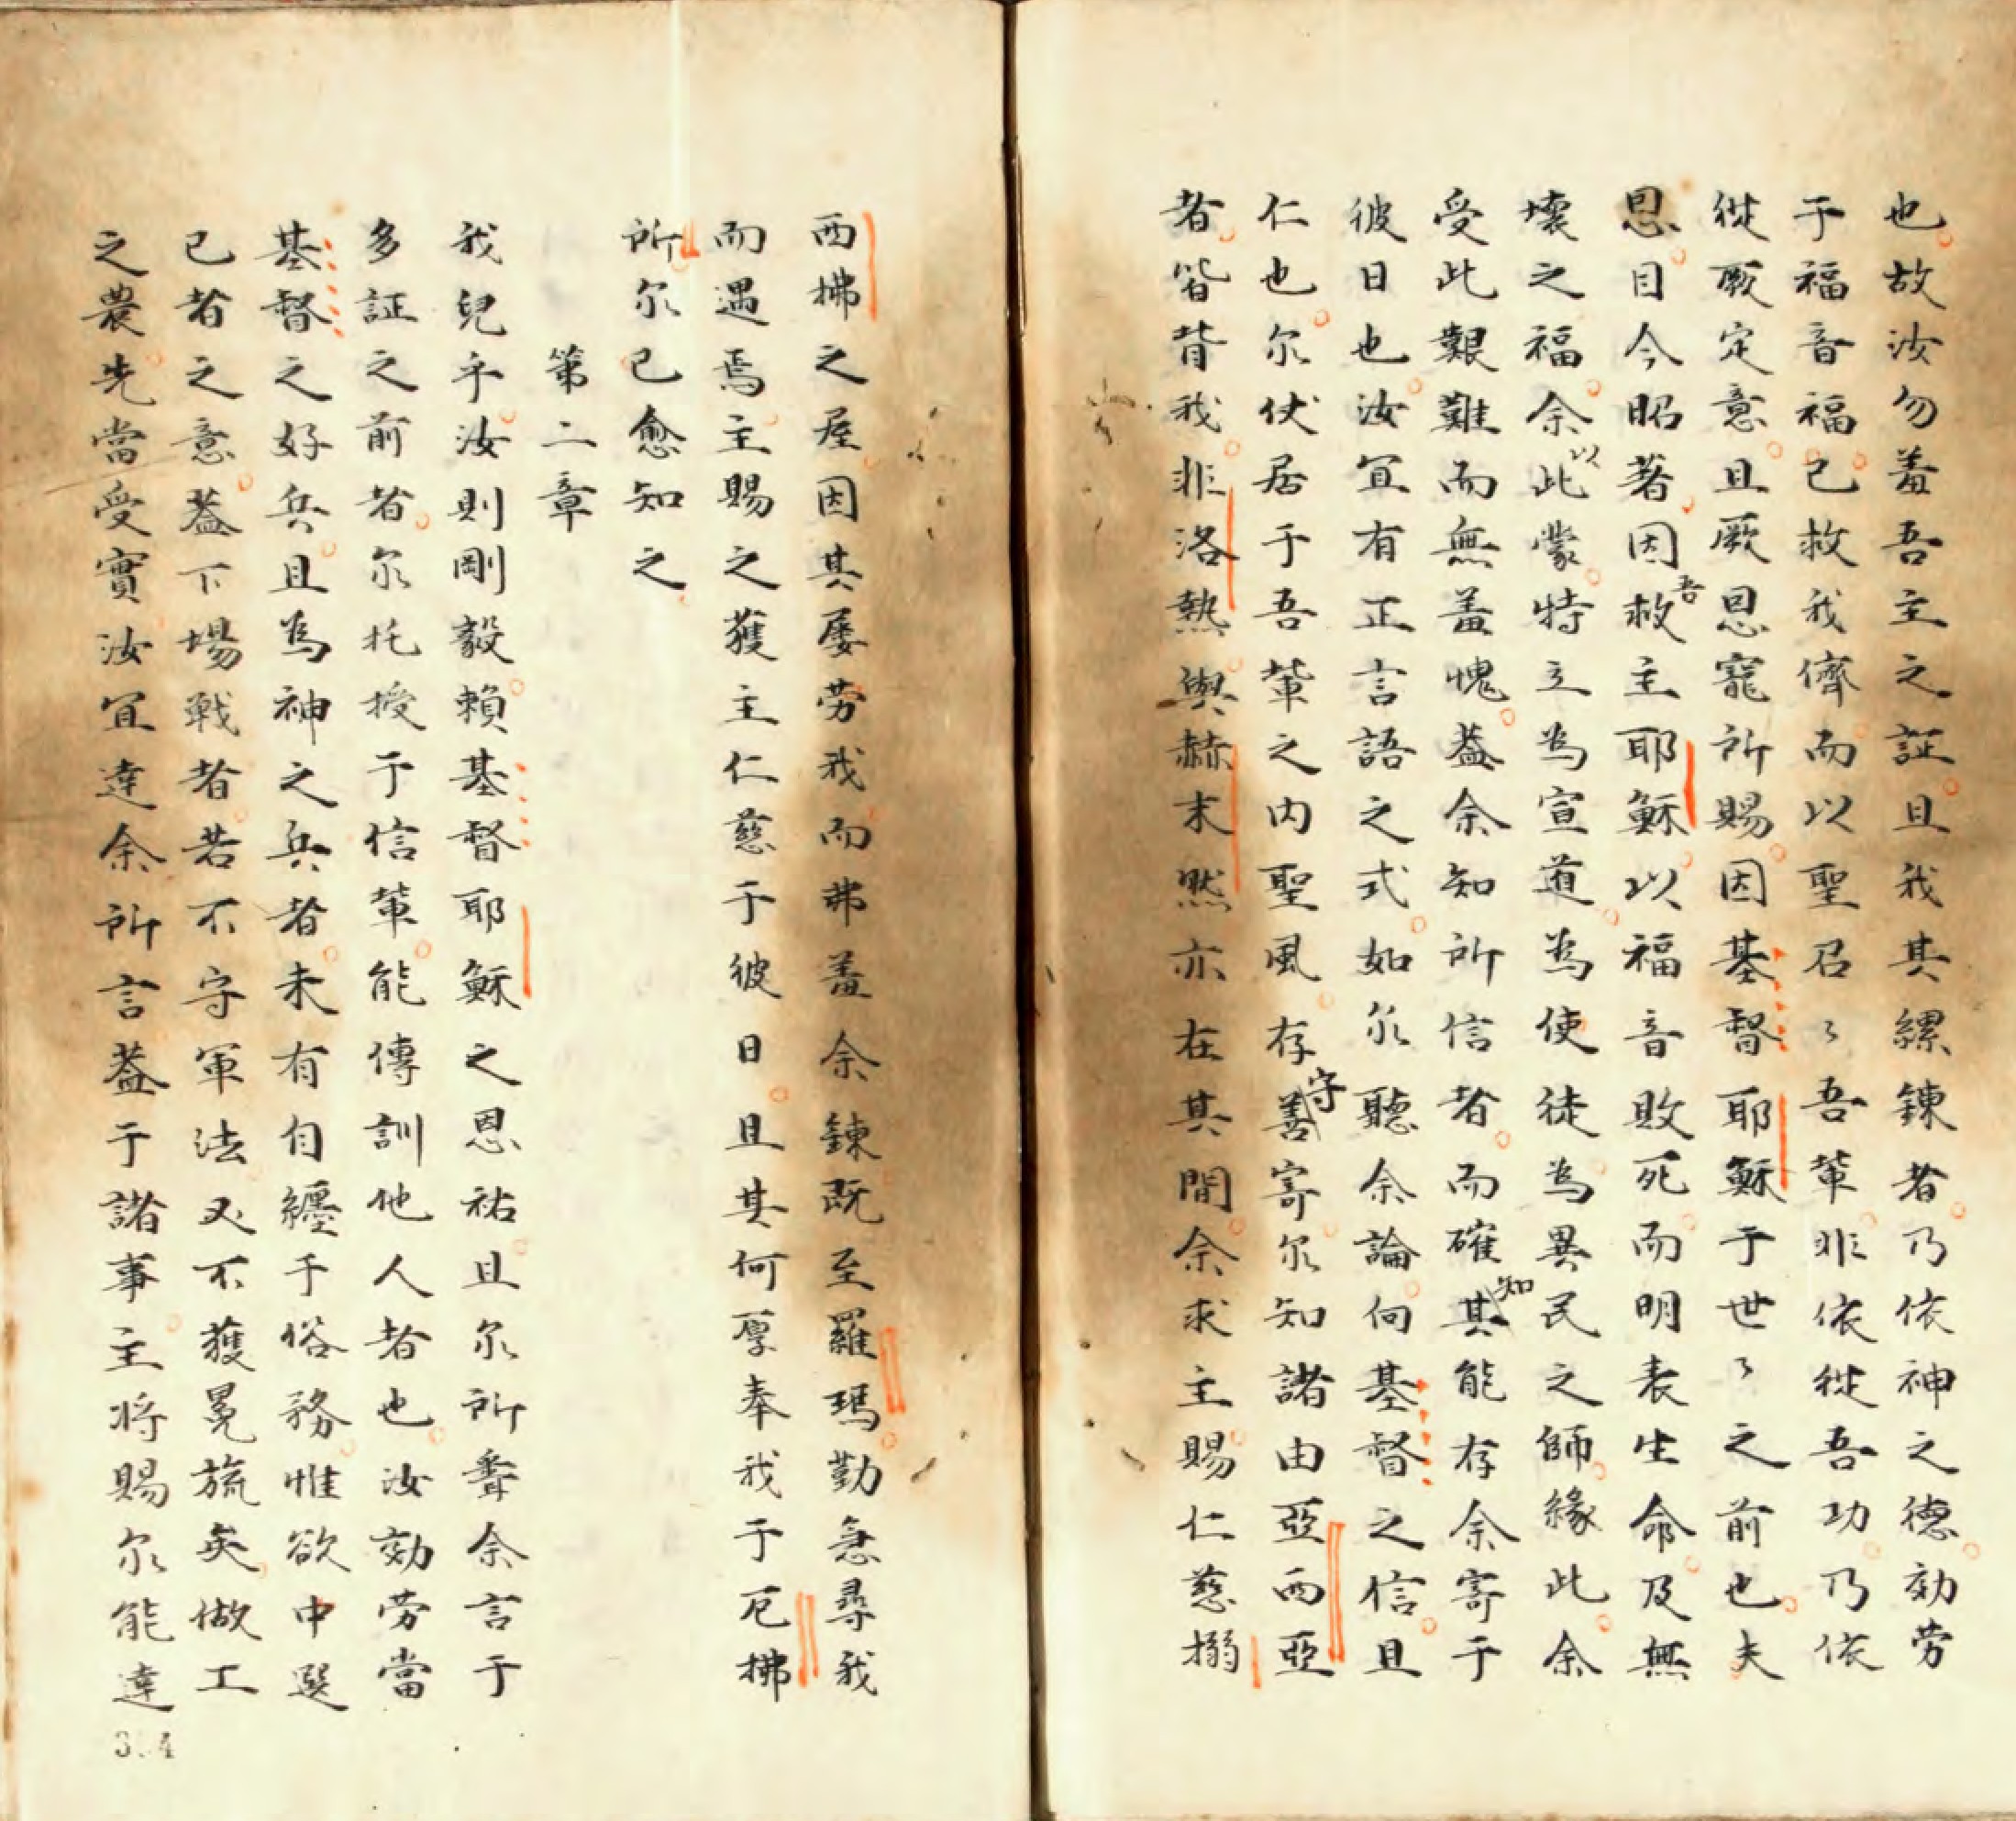 也故汝勿羞吾主之証且我其縲鍊者乃依神之德効劳
于福音福已救我儕而以聖召々吾輩非依從吾功乃依
從厥定意且厥恩寵所賜因基督耶穌于世々之前也夫
恩目今昭著因吾救主耶穌以福音敗死而明表生命及無
壞之福余以此蒙特立為宣道為使徒為異民之師緣此余
受此艱難而無羞愧葢余知所信者而確知其能存余寄于
彼日也汝宜有正言語之式如尔聽余論向基督之信且
仁也尔伏居于吾輩之内聖風存守善寄尔知諸由亞西亞
者皆背我非洛熱與赫末然亦在其間余求主賜仁慈搦
西拂之屋因其屡劳我而弗羞余鍊既至羅瑪勤急尋我
而遇焉主賜之獲主仁慈于彼日且其何厚奉我于厄拂
所尔已愈知之
第二章
我兒乎汝則剛毅賴基督耶穌之恩祐且尔所聞余言于
多証之前者尔托授于信輩能傳訓他人者也汝効劳當
基督之好兵且為神之兵者未有自纏于俗務惟欲中選
已者之意葢下場戰者若不守軍法又不獲冕旒矣做工
之農先當受實汝宜達余所言葢于諸事主将賜尔能達